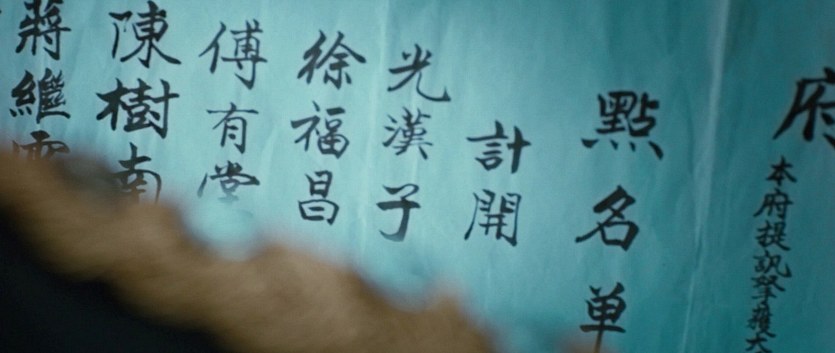 府
本府提訊拏獲大
點名单
計開
光漢子
徐福昌
傅有堂
陳樹南
蔣繼雲